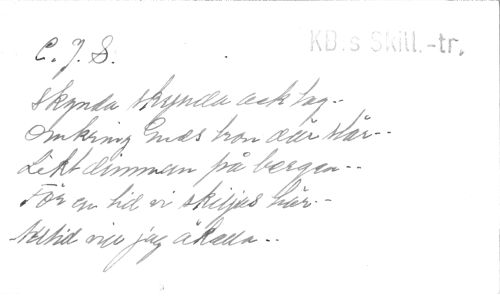 KB:s Skill.-tr.
C. J. S.
Skynda skynda ack tag --
Omkring Guds tron där står --
Likt dimman på bergen --
För en tid vi skiljas här --
Alltid vill jag åkalla --